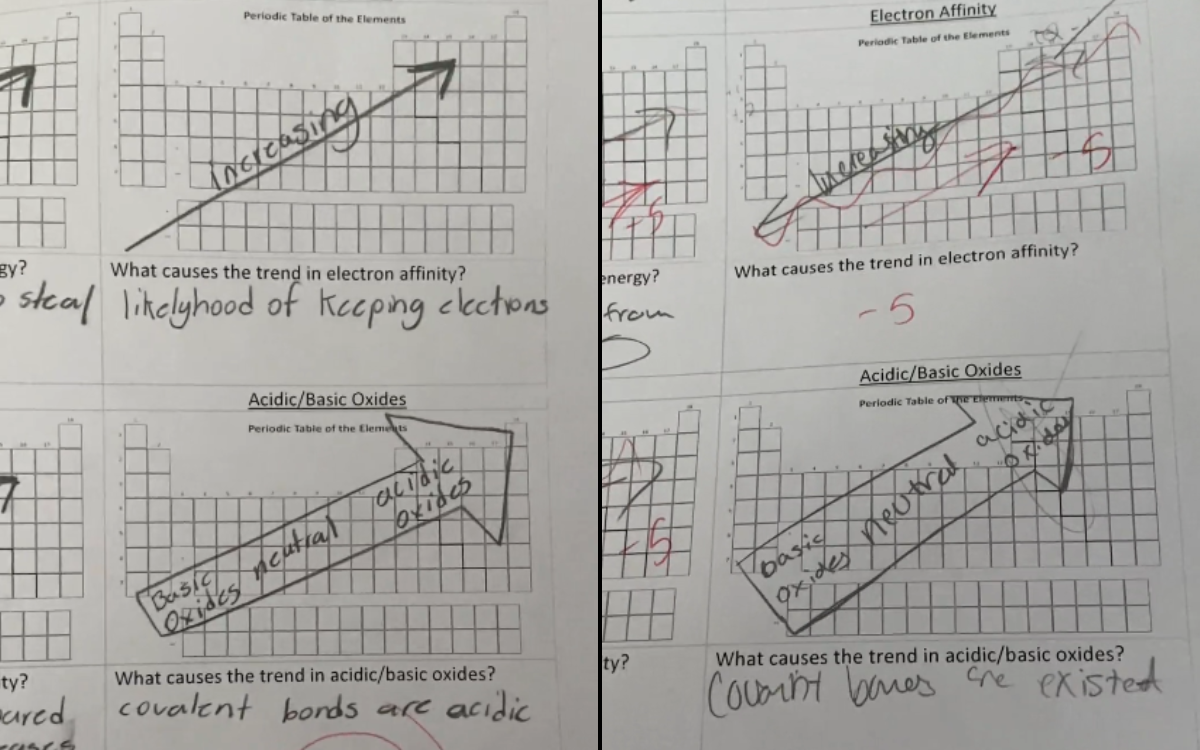 Periodic Table of the Elements
increasing
gy?
What causes the trend in electron affinity?
steal
likelyhood of keeping electrons
Acidic/Basic Oxides
Periodic Table of the Elements
acidic
oxides
neutral
Basic
oxides
ty?
What causes the trend in acidic/basic oxides?
ured
covalent bonds are acidic
Electron Affinity
Periodic Table of the Elements
Increasing
-5
-5
energy?
What causes the trend in electron affinity?
from
-5
Acidic/Basic Oxides
Periodic Table of the Elements
acidic
oxides
neutral
basic
oxides
-5
ty?
What causes the trend in acidic/basic oxides?